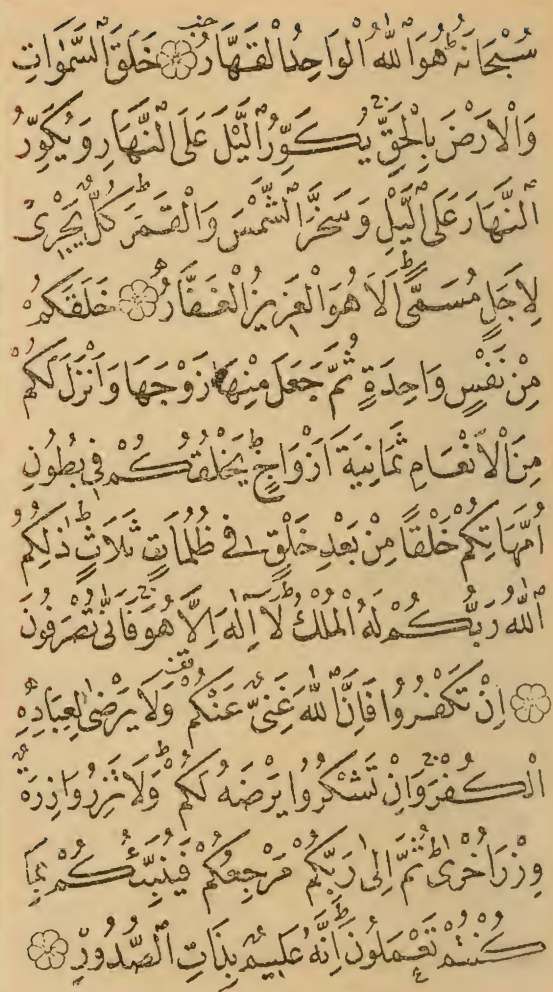 سُبْحَانَهُ هُوَ اللّٰهُ الْوَاحِدُ الْقَهَّارُ ۝ خَلَقَ السَّمٰوَاتِ
وَالْاَرْضَ بِالْحَقِّ يُكَوِّرُ الَّيْلَ عَلَى النَّهَارِ وَيُكَوِّرُ
النَّهَارَ عَلَى الَّيْلِ وَسَخَّرَ الشَّمْسَ وَالْقَمَرَ كُلٌّ يَجْرِىْ
لِاَجَلٍ مُسَمًّى اَلَا هُوَ الْعَزِيزُ الْغَفَّارُ ۝ خَلَقَكُمْ
مِنْ نَفْسٍ وَاحِدَةٍ ثُمَّ جَعَلَ مِنْهَا زَوْجَهَا وَاَنْزَلَ لَكُمْ
مِنَ الْاَنْعَامِ ثَمَانِيَةَ اَزْوَاجٍ يَخْلُقُكُمْ فِى بُطُونِ
اُمَّهَاتِكُمْ خَلْقًا مِنْ بَعْدِ خَلْقٍ فِى ظُلُمَاتٍ ثَلَاثٍ ذٰلِكُمُ
اللّٰهُ رَبُّكُمْ لَهُ الْمُلْكُ لَا اِلٰهَ اِلَّا هُوَ فَاَنّٰى تُصْرَفُونَ
۝ اِنْ تَكْفُرُوا فَاِنَّ اللّٰهَ غَنِىٌّ عَنْكُمْ وَلَا يَرْضٰى لِعِبَادِهِ
الْكُفْرَ وَاِنْ تَشْكُرُوا يَرْضَهُ لَكُمْ وَلَا تَزِرُ وَازِرَةٌ
وِزْرَ اُخْرٰى ثُمَّ اِلٰى رَبِّكُمْ مَرْجِعُكُمْ فَيُنَبِّئُكُمْ بِمَا
كُنْتُمْ تَعْمَلُونَ اِنَّهُ عَلِيمٌ بِذَاتِ الصُّدُورِ ۝